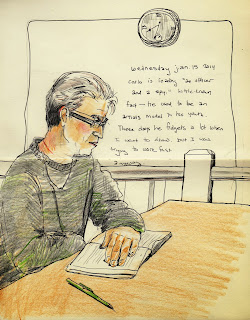 Wednesday Jan. 15 2014
Carlo is reading "An officer
and a spy." Little-known
fact — he used to be an
artists model in his youth.
These days he fidgets a lot when
I want to draw, but I have
to work fast